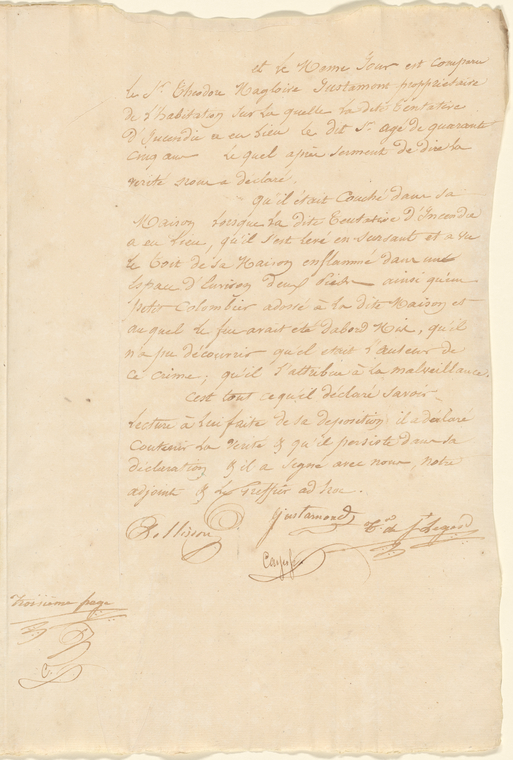 et le Meme Jour est comparu
le Sr. Theodou Magloire Justamont proprietaire
de l'habitation sur la quelle la dite tentative
d'Incendie a eu lieu le dit Sr. agé de quarante
cinq ans le quel après serment de dire la
verité nous a declaré.
qu'il était Couché dans sa
Maison lorsque la dite tentative d'Incendie
a eu lieu, qu'il s'est levé en sursaut et a vu
le toit de sa Maison enflammé dans une
Espace d'Environ deux Pieds ainsi qu'un
petit Colombier adossé à la dite Maison et
auquel le feu avait été dabord Mis, qu'il
n'a pu découvrir quel était l'auteur de
ce crime; qu'il l'attribue à la malveillance.
c'est tout ce qu'il déclaré savoir
Lecture à lui faite de sa deposition il a déclaré
Contenir la verité & qu'il persiste dans sa
déclaration & il a signé avec nous, notre
adjoint & le Greffier ad hoc.
Justamond
troisième page
C